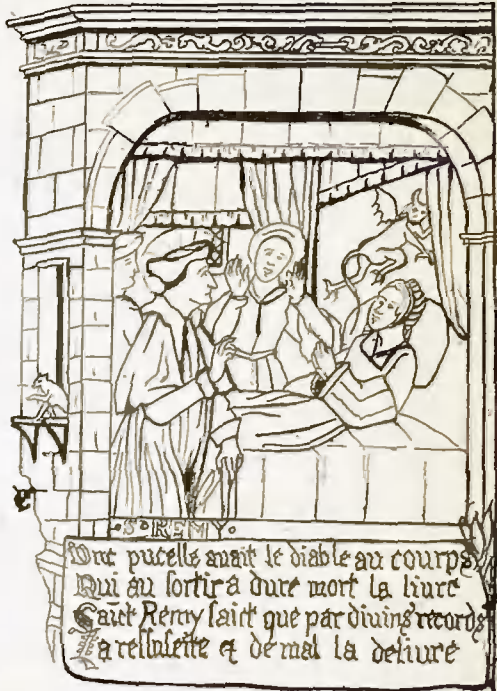 ·S·REMY·
Une pucelle avait le diable au courps
Qui au sortir a dure mort la livre
Saict Remy faict que par divins records
La resuscite & de mal la delivre